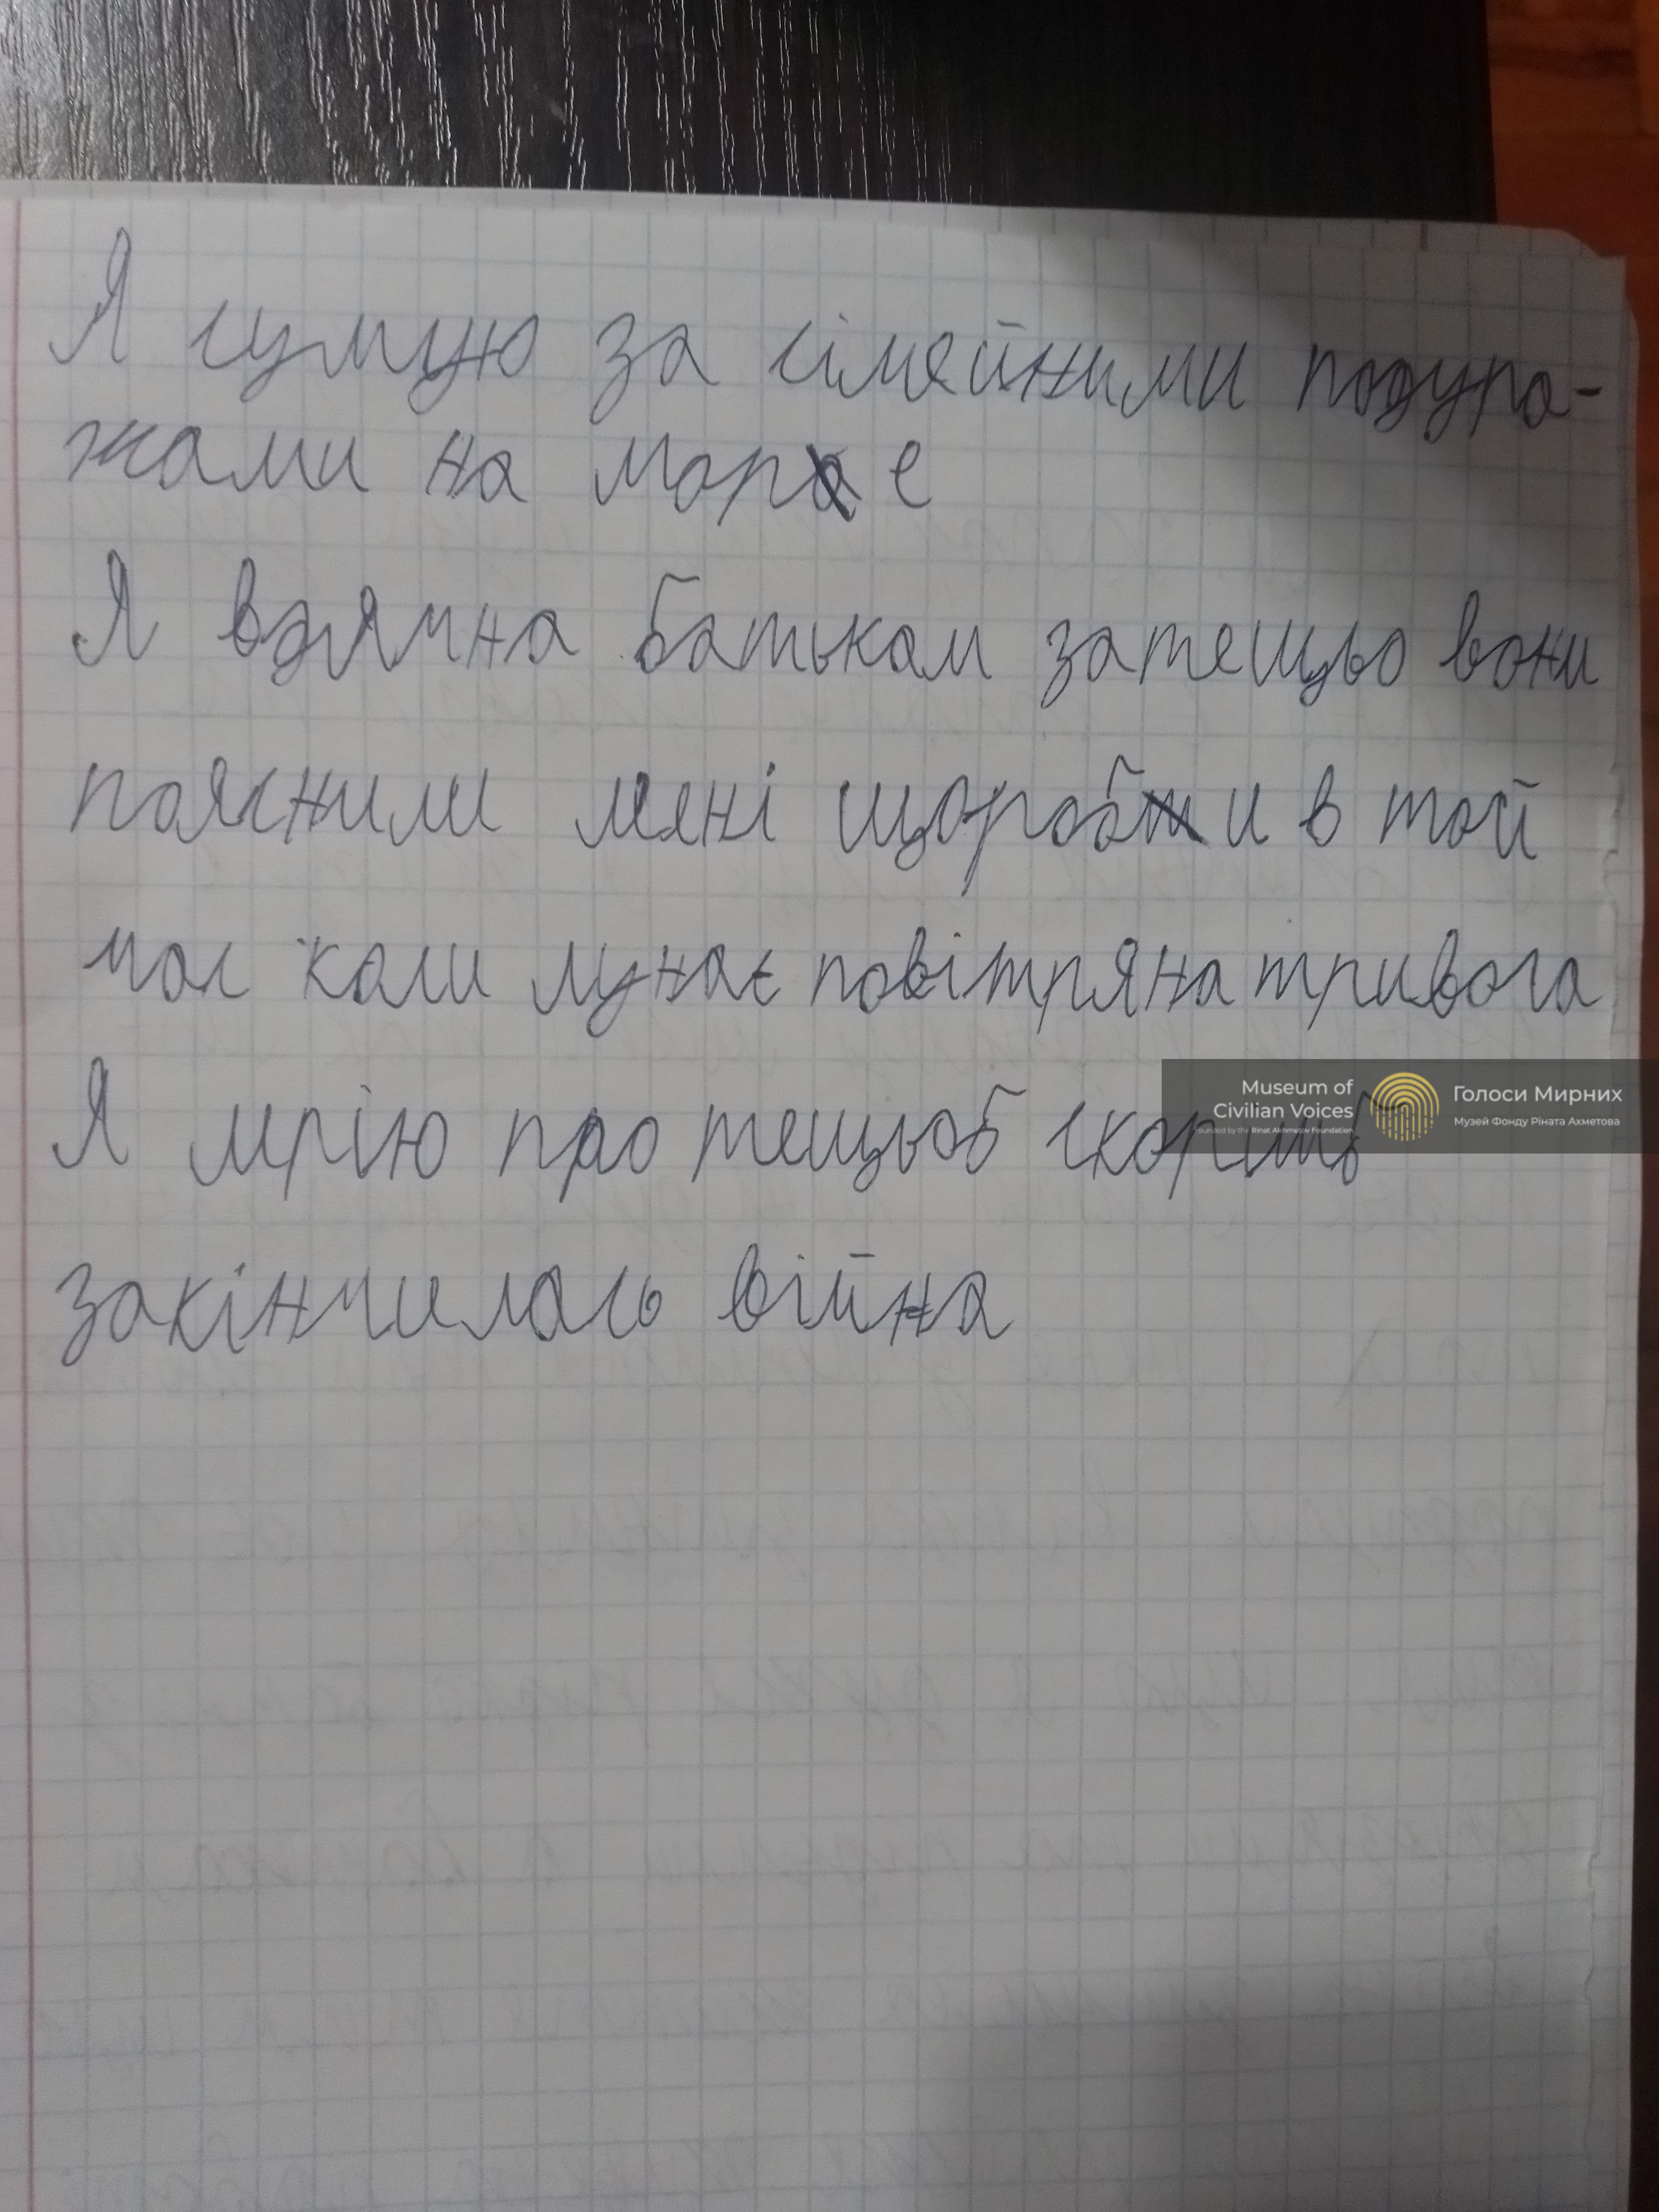 Я сумую за сімейними подура-
жами на море
Я вдячна батькам затещьо вони
пояснили мені щороби в той
час коли лунає повітряна тривога
Я мрію про тещьоб скоріш
закінчилась війна
Museum of
Civilian Voices
Founded by the Rinat Akhmetov Foundation
Голоси Мирних
Музей Фонду Ріната Ахметова